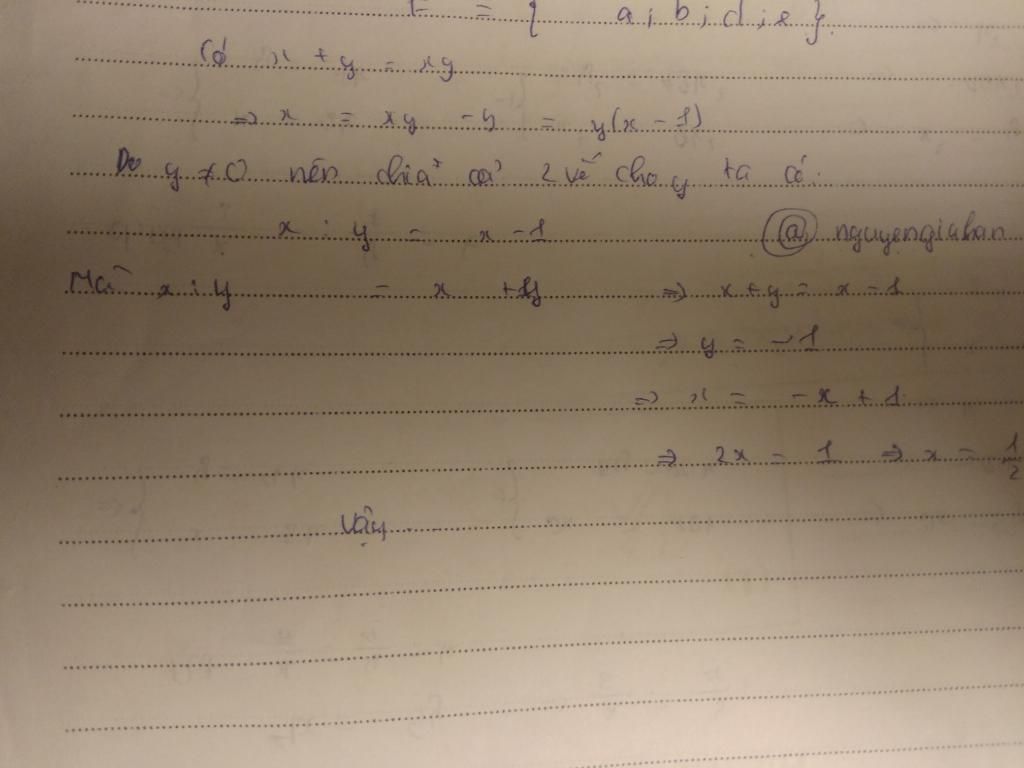 = { a; b; d; e }.
Có x + y = xy
=> x = xy - y = y(x - 1)
Do y ≠ 0 nên chia cả 2 vế cho y ta có:
x : y = x - 1 @ nguyengiahan
Mà x : y = x + y => x + y = x - 1
=> y = -1
=> x = -x + 1
=> 2x = 1 => x = 1/2
Vậy ...